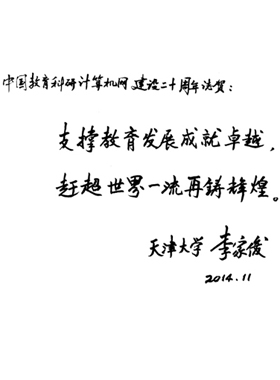 中国教育科研计算机网建设二十周年志贺：
支撑教育发展成就卓越，
赶超世界一流再铸辉煌。
天津大学 李家俊
2014.11